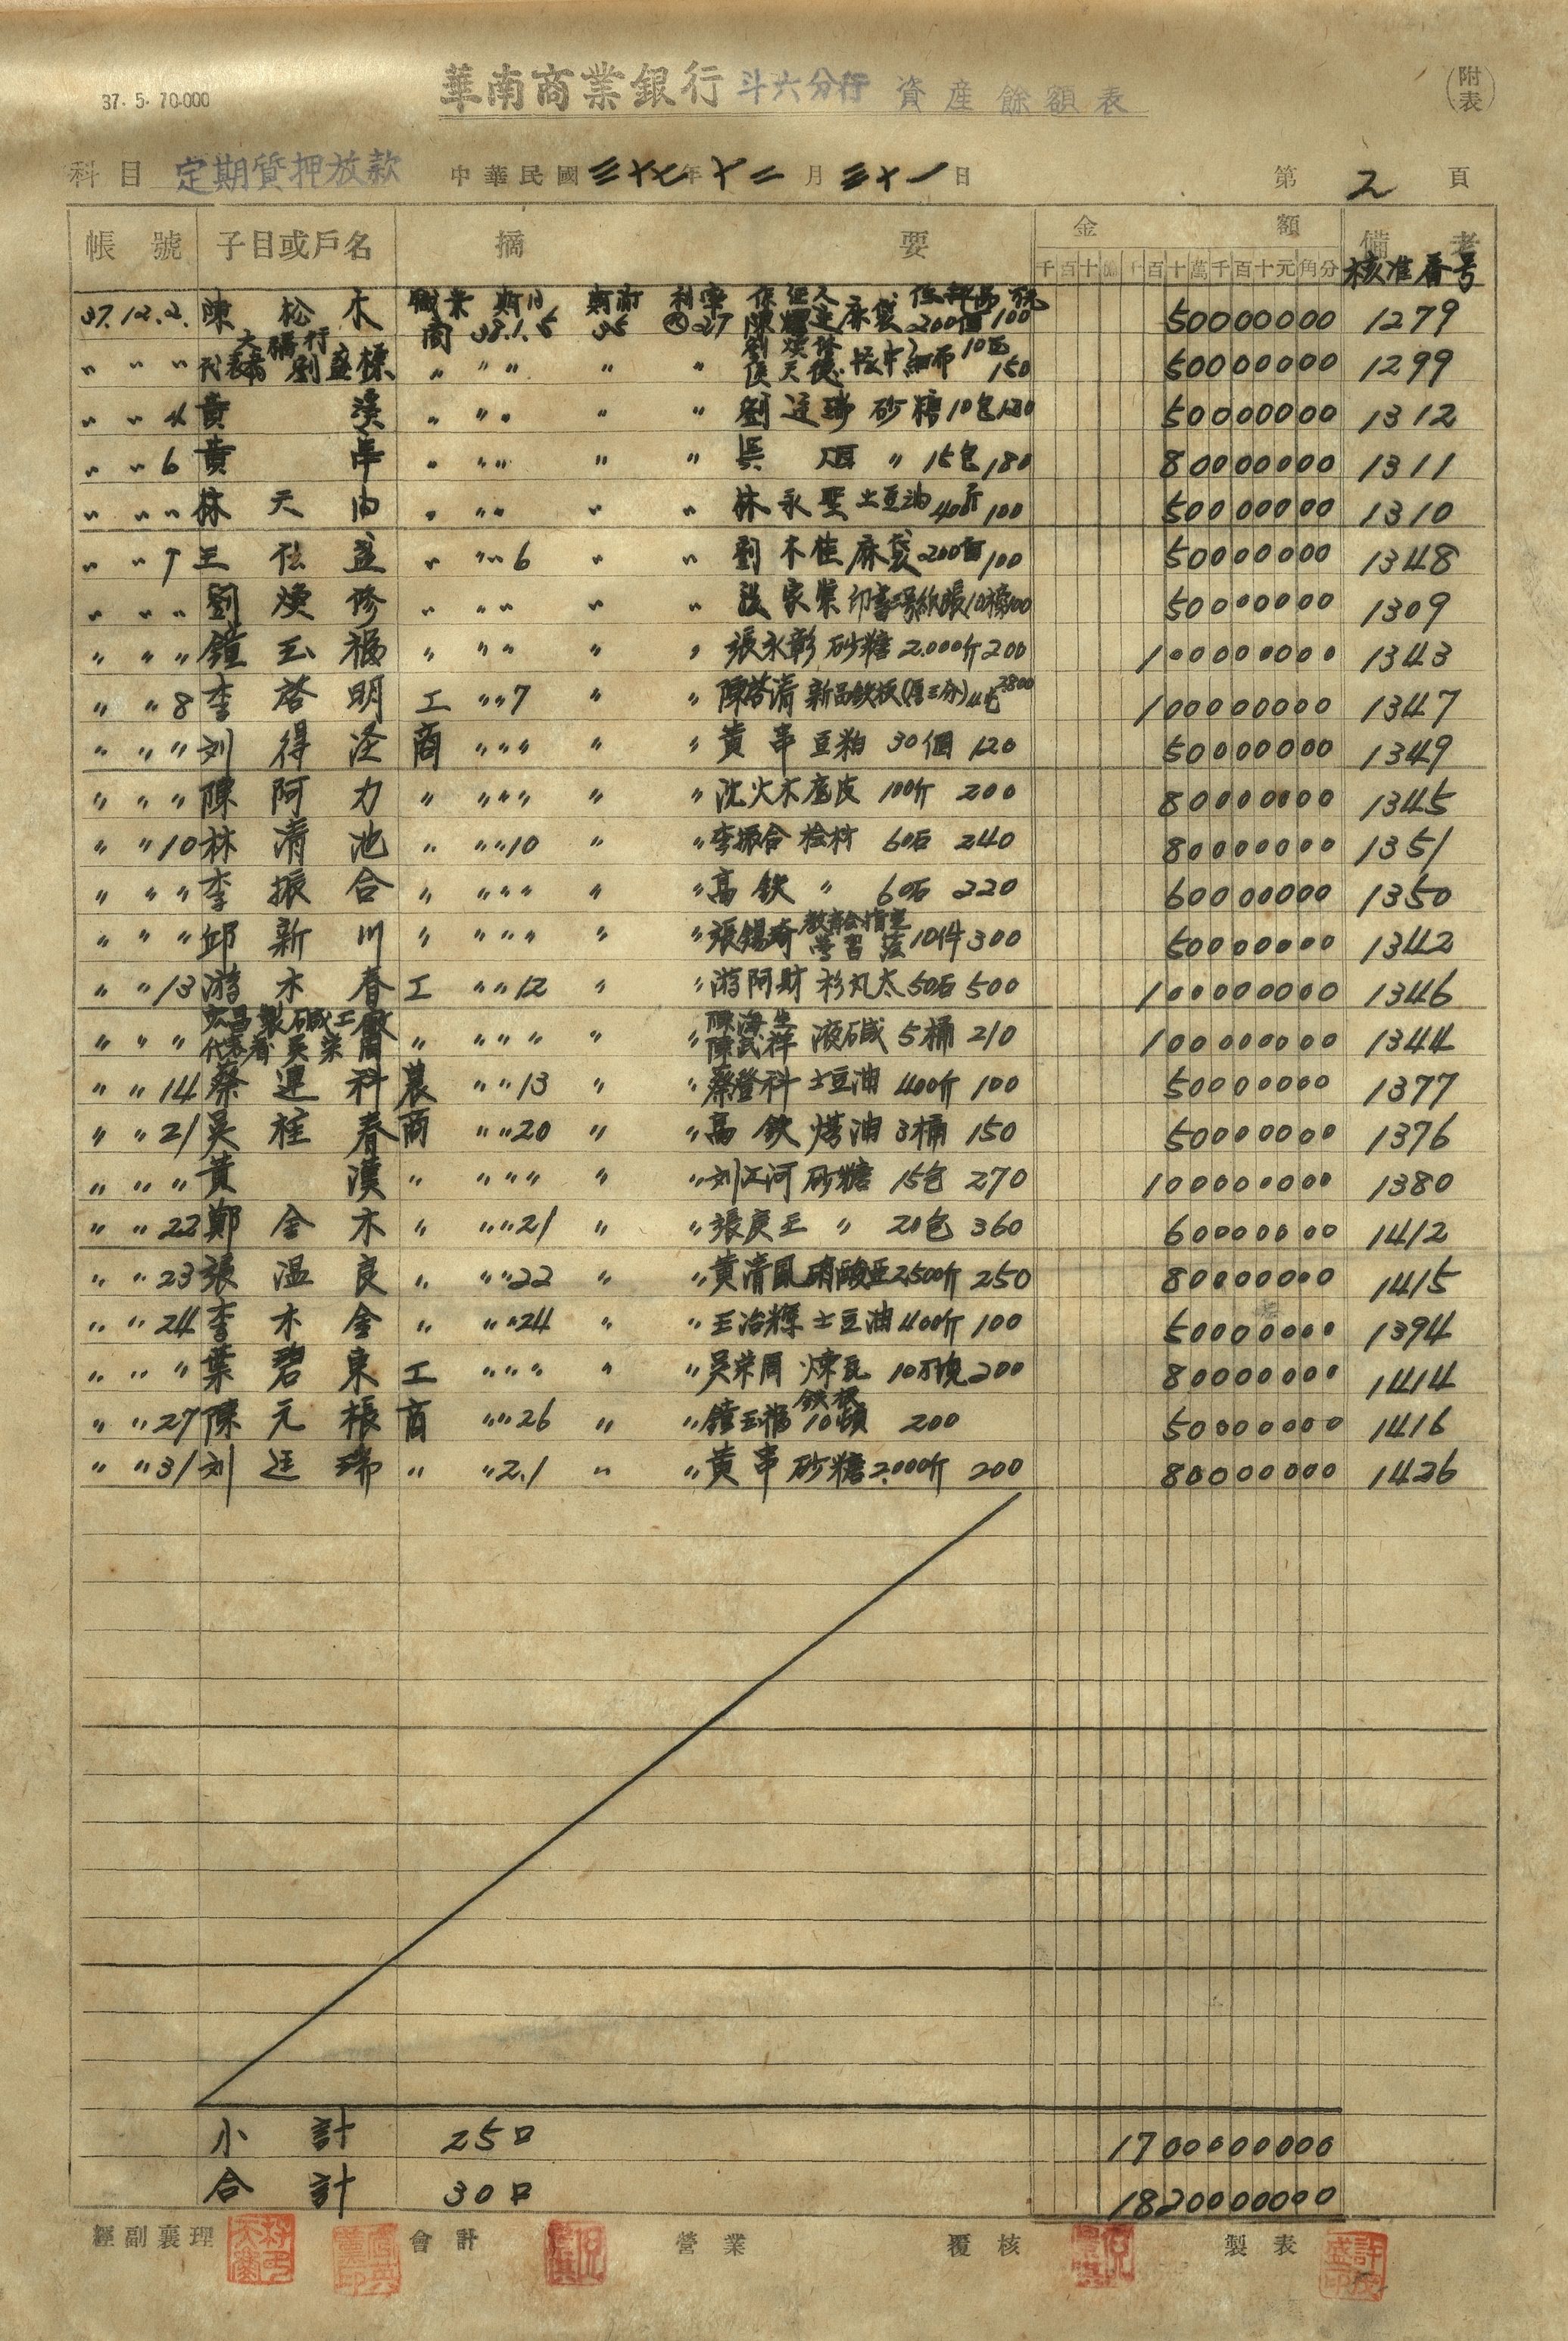 37. 5. 70.000
華南商業銀行 斗六分行 資產餘額表
附表
科目 定期質押放款 中華民國三十七年十二月三十一日 第2頁
帳號 子目或戶名 摘要 金額 備考
千百十億千百十萬千百十元角分 核准番号
職業 期日 期間 利率 保証人
37.12.2. 陳松木 商 38.1.5 35 27 麻袋 200個 100 50000000 1279
〃 〃 〃 代表者 劉益標 〃 〃 〃 〃 〃 劉煥修 侯天德 細布 10匹 150 50000000 1299
〃 〃 4 黃漢 〃 〃 〃 〃 〃 劉廷瑞 砂糖 10包 50000000 1312
〃 〃 6 黃串 〃 〃 〃 〃 〃 吳 〃 15包 180 80000000 1311
〃 〃 〃 林天由 〃 〃 〃 〃 〃 林永聖 土豆油 100 50000000 1310
〃 〃 7 王 益 〃 〃 〃 6 〃 〃 劉木桂 麻袋 200個 100 50000000 1348
〃 〃 〃 劉煥修 〃 〃 〃 〃 〃 〃 50000000 1309
〃 〃 〃 鐘玉福 〃 〃 〃 〃 〃 張永彰 砂糖 2.000斤 200 100000000 1343
〃 〃 8 李啓明 工 〃 〃 7 〃 〃 陳啓清 新品鉄板(厚三分) 2800 100000000 1347
〃 〃 〃 刘得 商 〃 〃 〃 〃 〃 黃串 豆粕 30個 120 50000000 1349
〃 〃 〃 陳阿力 〃 〃 〃 〃 〃 〃 沈火木 100斤 200 80000000 1345
〃 〃 10 林清池 〃 〃 〃 10 〃 〃 李振合 桧材 60石 240 80000000 1351
〃 〃 〃 李振合 〃 〃 〃 〃 〃 〃 高欽 〃 60石 220 60000000 1350
〃 〃 〃 邱新川 〃 〃 〃 〃 〃 〃 張錫琦 10件 300 50000000 1342
〃 〃 13 游木春 工 〃 〃 12 〃 〃 游阿財 杉丸太 50石 500 100000000 1346
〃 〃 〃 宏昌製碱工廠 代表者 吳榮周 〃 〃 〃 〃 〃 〃 陳海生 陳武祥 液碱 5桶 210 100000000 1344
〃 〃 14 蔡連科 農 〃 〃 13 〃 〃 蔡登科 土豆油 400斤 100 50000000 1377
〃 〃 21 吳桂春 商 〃 〃 20 〃 〃 高欽 油 3桶 150 50000000 1376
〃 〃 〃 黃漢 〃 〃 〃 〃 〃 〃 刘江河 砂糖 15包 270 100000000 1380
〃 〃 22 鄭金木 〃 〃 〃 21 〃 〃 張庚王 〃 20包 360 60000000 1412
〃 〃 23 張温良 〃 〃 〃 22 〃 〃 黃清鳳 硝酸亞 2,500斤 250 80000000 1415
〃 〃 24 李木金 〃 〃 〃 24 〃 〃 王治輝 土豆油 400斤 100 50000000 1394
〃 〃 〃 葉碧東 工 〃 〃 〃 〃 〃 吳榮周 煉瓦 10万塊 200 80000000 1414
〃 〃 27 陳元棖 商 〃 〃 26 〃 〃 鐘玉福 鉄板 10噸 200 50000000 1416
〃 〃 31 刘廷瑞 〃 〃 2.1 〃 〃 黃串 砂糖 2.000斤 200 80000000 1426
小計 25口 1700000000
合計 30口 1820000000
經副襄理 會計 營業 覆核 製表